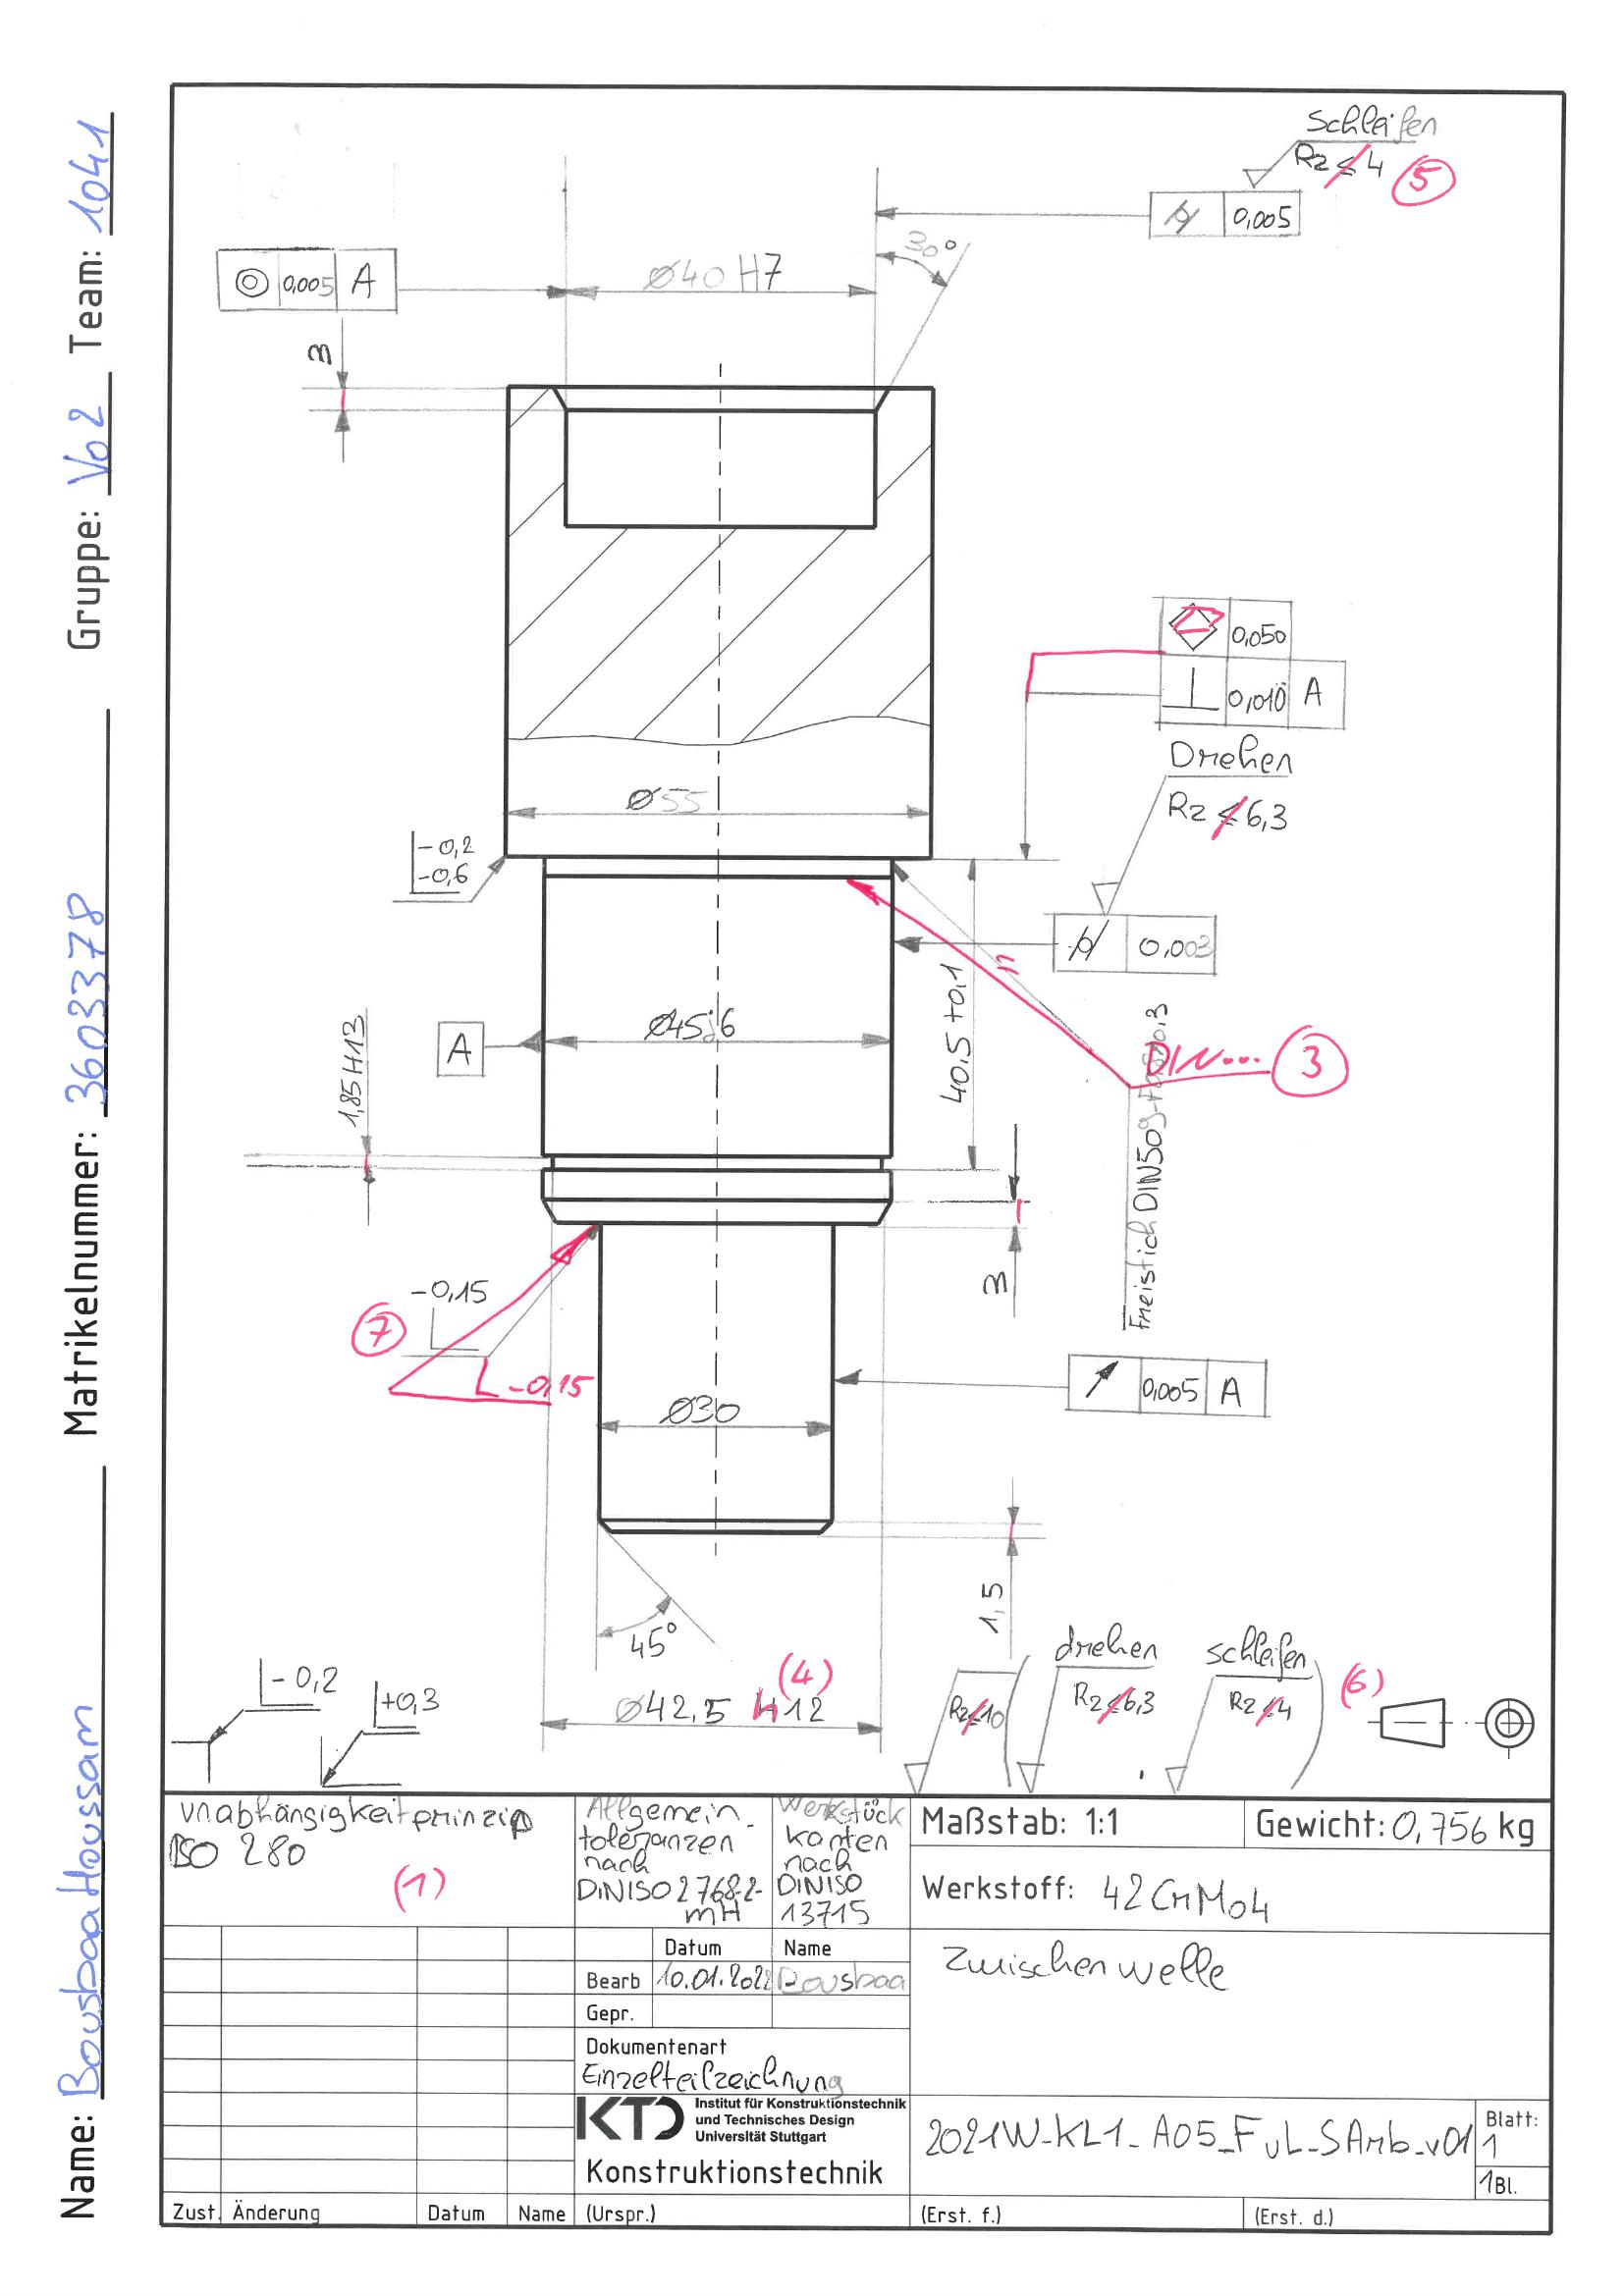 Name: Bousbaa Houssam Matrikelnummer: 3603378 Gruppe: Vo2 Team: 1041
Schleifen
Rz ≤ 4
5
0,005
30°
Ø40 H7
0,005 A
3
0,050
0,010 A
Drehen
Rz ≤ 6,3
Ø55
-0,2
-0,6
0,003
n
40,5 +0,1
Ø45j6
A
1,85 H13
DIN...
3
Freistich DIN509-
3
-0,15
7
-0,15
0,005 A
Ø30
1,5
45°
(4)
Ø42,5 h 12
-0,2
+0,3
Rz ≤ 10
drehen
Rz ≤ 6,3
schleifen
Rz ≤ 4
(6)
Unabhängigkeitprinzip
ISO 280
(1)
Allgemein-
toleranzen
nach
DIN ISO 2768-2-
mH
Werkstück
kanten
nach
DIN ISO
13715
Maßstab: 1:1
Gewicht: 0,756 kg
Werkstoff: 42CrMo4
Datum Name
Bearb 10.01.2022 Bousbaa
Gepr.
Zwischenwelle
Dokumentenart
Einzelteilzeichnung
KTD
Institut für Konstruktionstechnik
und Technisches Design
Universität Stuttgart
Konstruktionstechnik
2021W-KL1-A05_FuL-SArb-v01
Blatt:
1
1Bl.
Zust. Änderung Datum Name (Urspr.) (Erst. f.) (Erst. d.)